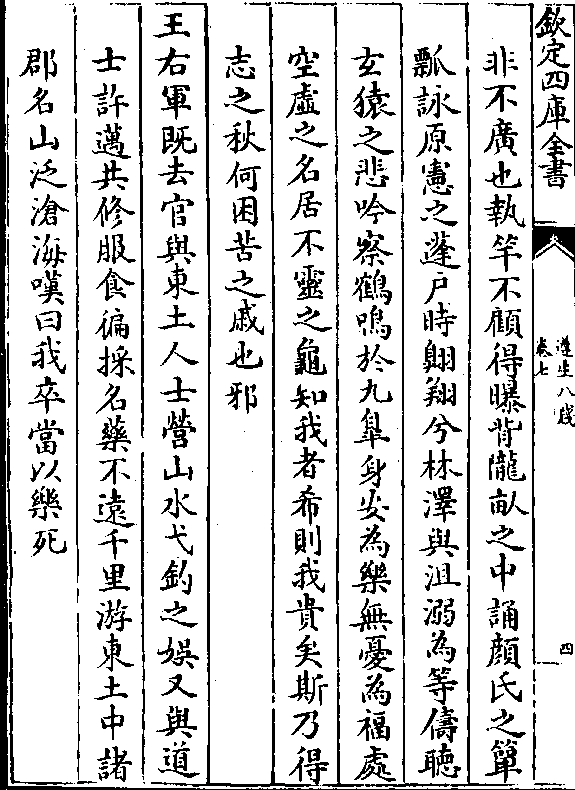 欽定四庫全書
遵生八牋
卷七
四
非不廣也執竿不顧得曝背隴畝之中誦顔氏之簞
瓢詠原憲之蓬戶時翺翔兮林澤與沮溺為等儔聽
玄猿之悲吟察鶴鳴於九臯身安為樂無憂為福處
空虛之名居不靈之龜知我者希則我貴矣斯乃得
志之秋何困苦之戚也邪
王右軍既去官與東土人士營山水弋釣之娛又與道
士許邁共修服食徧採名藥不遠千里游東土中諸
郡名山泛滄海嘆曰我卒當以樂死